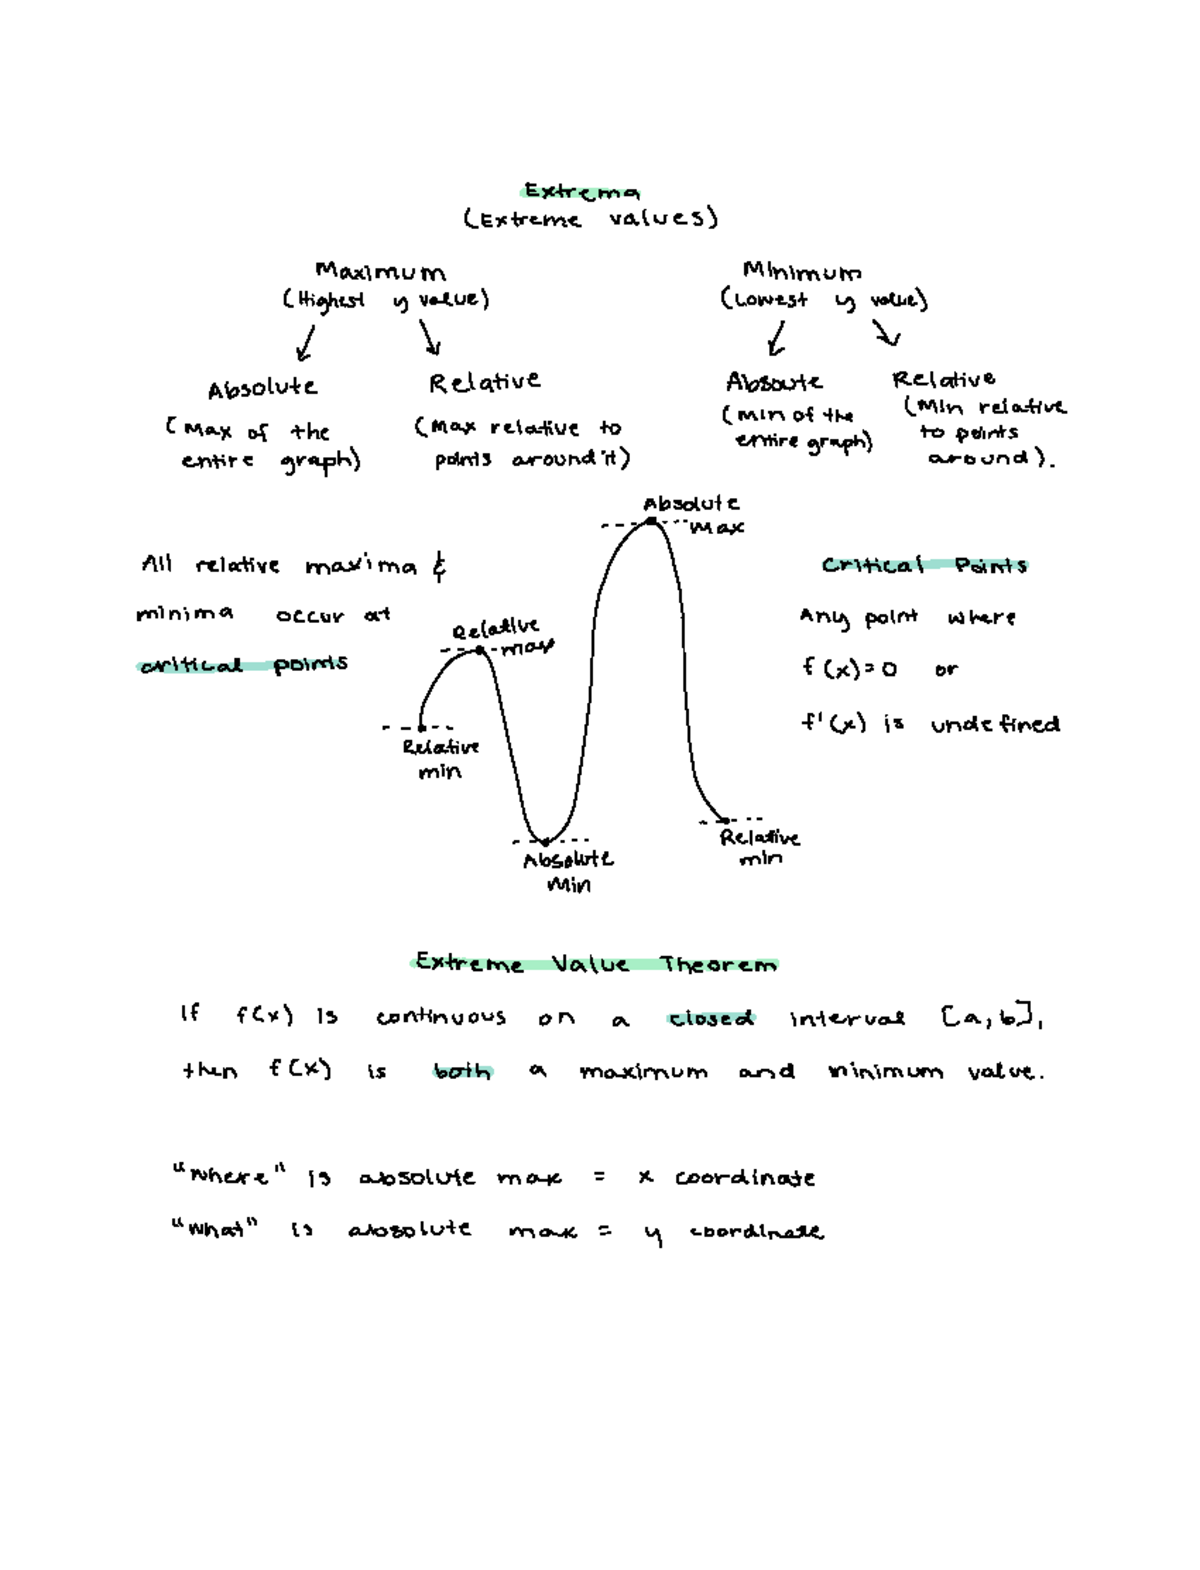 Extrema
(Extreme values)
Maximum
(Highest y value)
Minimum
(Lowest y value)
Absolute
(Max of the
entire graph)
Relative
(Max relative to
points around it)
Absoute
(Min of the
entire graph)
Relative
(Min relative
to points
around).
All relative maxima &
minima occur at
critical points
Absolute
max
Relative
max
Relative
min
Absolute
Min
Relative
min
Critical Points
Any point where
f(x)=0 or
f'(x) is undefined
Extreme Value Theorem
If f(x) is continuous on a closed interval [a,b],
then f(x) is both a maximum and minimum value.
"Where" is absolute max = x coordinate
"What" is absolute max = y coordinate